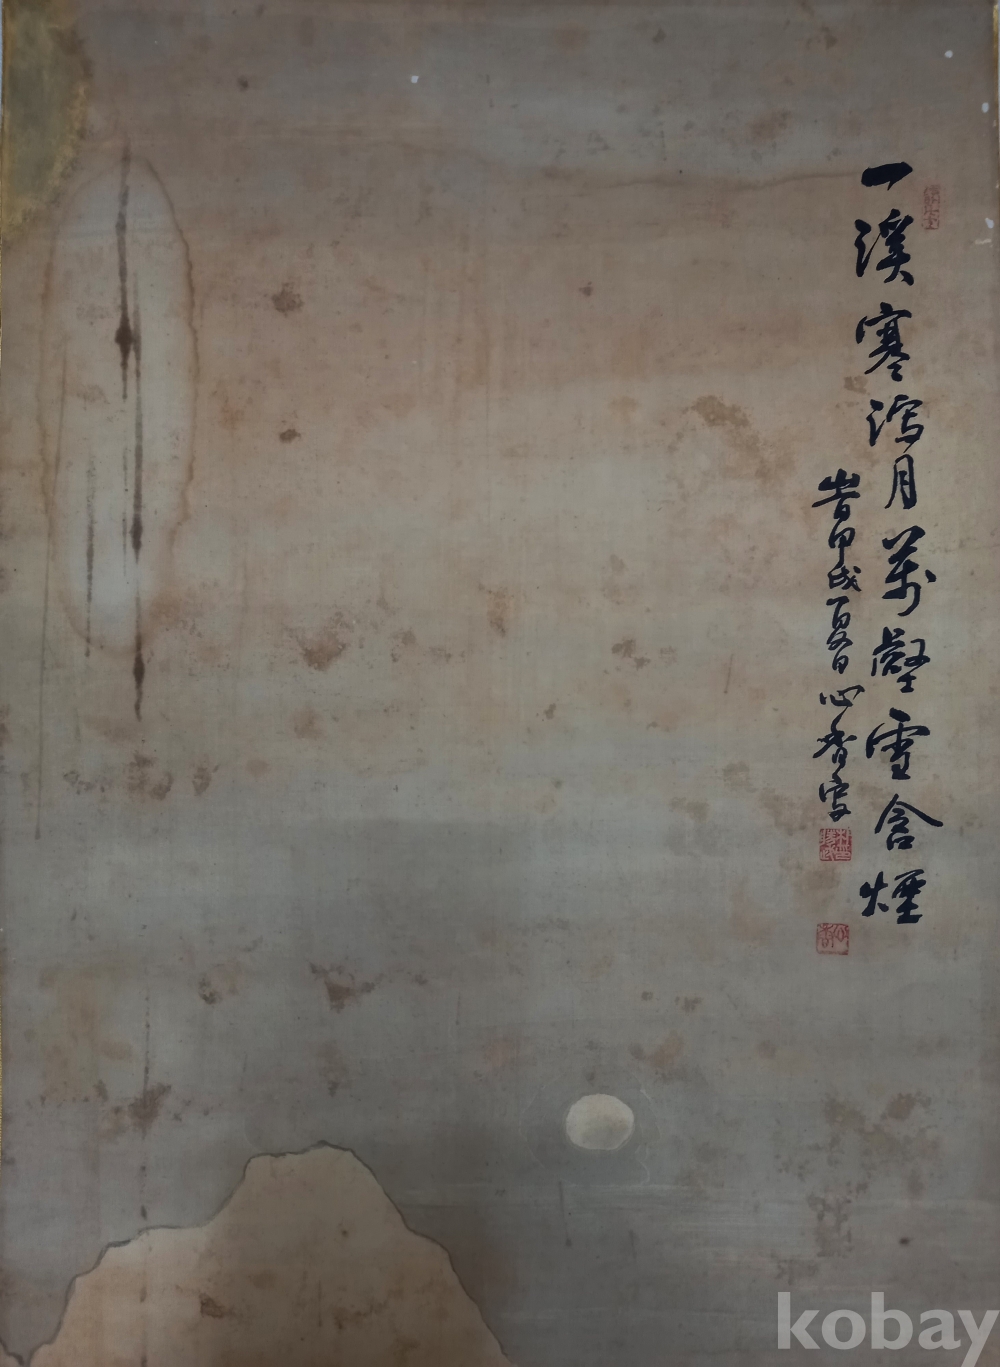 一溪寒瀉月萬壑雪含煙
旹甲戌夏日心香寫
kobay